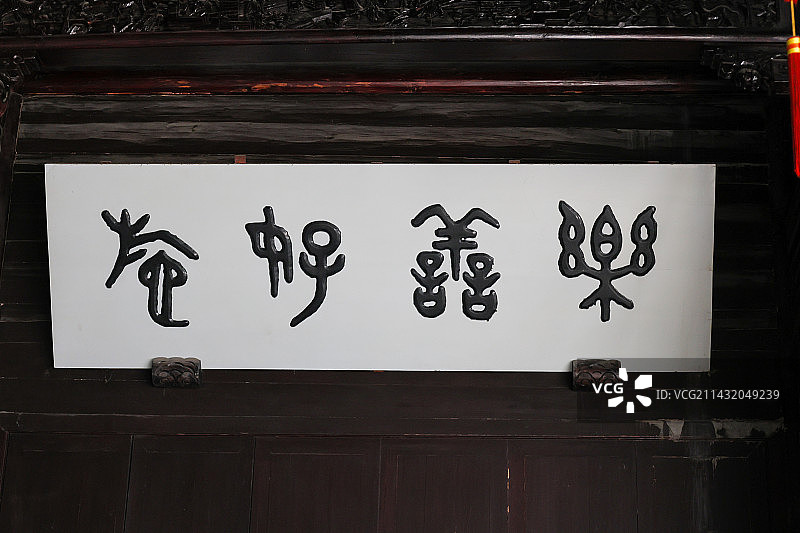 樂善好施
VCG ID: VCG211432049239